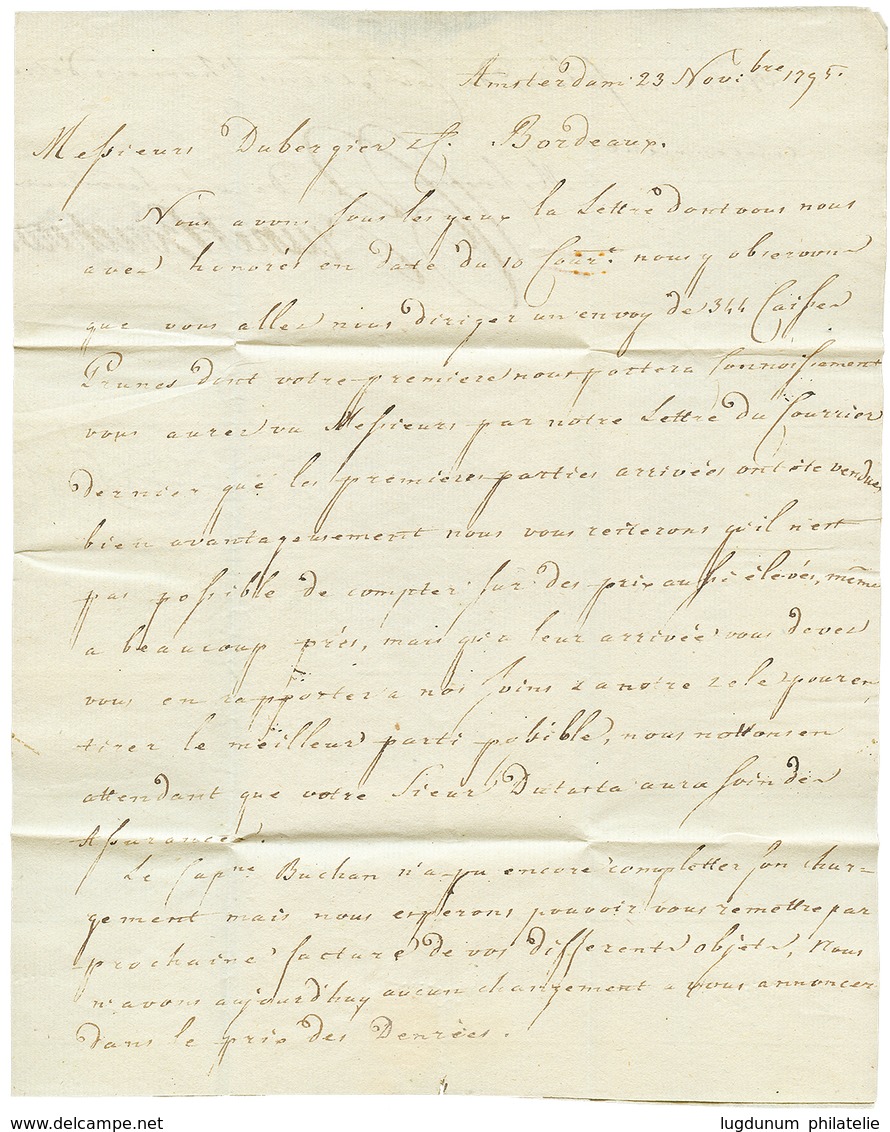 Amsterdam 23 Novi:bre 1795.
Messieurs Dubergier & C. Bordeaux.
Nous avons sous les yeux la Lettre dont vous nous
avez honorés en date du 10 Cour.t nous y observons
que vous allez nous diriger un envoy de 344 Caisses
Prunes dont votre premiere nous portera Connoissement
vous aurez vu Messieurs par notre Lettre du Courrier
dernier que les premieres parties arrivées ont été vendues
bien avantageusement nous vous reiterons qu'il n'est
pas possible de compter sur des prix aussi élevés, même
a beaucoup prés, mais qu'a leur arrivée vous devez
vous en rapporter a nos soins & a notre zele pour en
tirer le meilleur parti possible, nous nottons en
attendant que votre Sieur Dutasta aura soin des
Assurances.
Le Capne Buchan n'a pu encore completter son char=
gement mais nous esperons pouvoir vous remettre par
prochaine facture de vos differents objets, Nous
n'avons aujourd'huy aucun changement a vous annoncer
dans le prix des Denrées.
www.delcampe.net
lugdunum philatelie